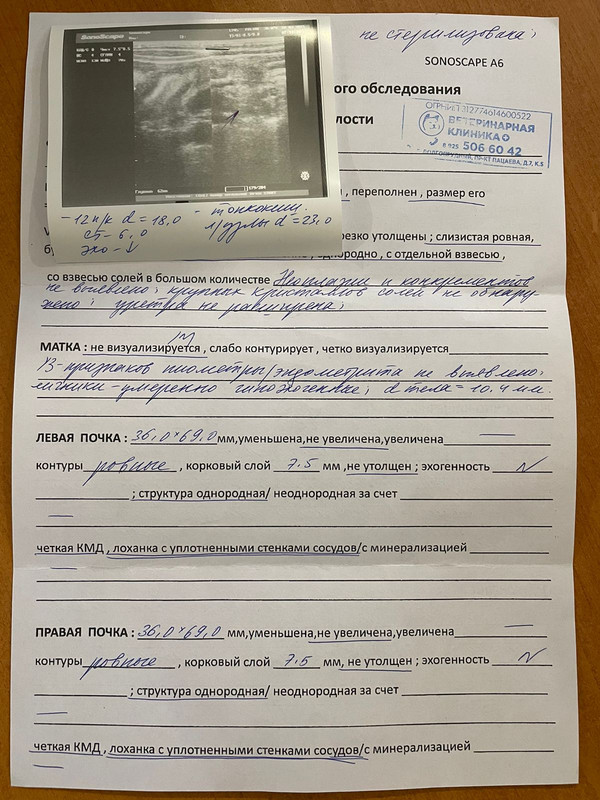 не стерилизована;
SONOSCAPE A6
ого обследования
лости
ОГРНИП 312774614600522
ВЕТЕРИНАРНАЯ
КЛИНИКА
8 925 506 60 42
ДОЛГОПРУДНЫЙ, ПР-КТ ПАЦАЕВА, Д.7, К.5
SonoScape
, переполнен , размер его
-12 п/к d = 18,0 - тонкокишеч.
ст- 6,0 л/узлы d = 23,0
эхо-↓
резко утолщены ; слизистая ровная,
однородно , с отдельной взвесью ,
со взвесью солей в большом количестве Неоплазии и конкрементов
не выявлено; крупных кристаллов солей не обнару-
жено; уретра не расширена;
МАТКА : не визуализируется , слабо контурирует , четко визуализируется
УЗ-признаков пиометры/эндометрита не выявлено;
яичники-умеренно гипоэхогенные; d тела = 10,4 мм.
ЛЕВАЯ ПОЧКА : 36,0×69,0 мм,уменьшена,не увеличена,увеличена
контуры ровные , корковый слой 7.5 мм ,не утолщен ; эхогенность N
; структура однородная/ неоднородная за счет
четкая КМД , лоханка с уплотненными стенками сосудов/с минерализацией
ПРАВАЯ ПОЧКА : 36,0×69,0 мм,уменьшена,не увеличена,увеличена
контуры ровные , корковый слой 7.5 мм, не утолщен ; эхогенность N
; структура однородная/ неоднородная за счет
четкая КМД , лоханка с уплотненными стенками сосудов/с минерализацией